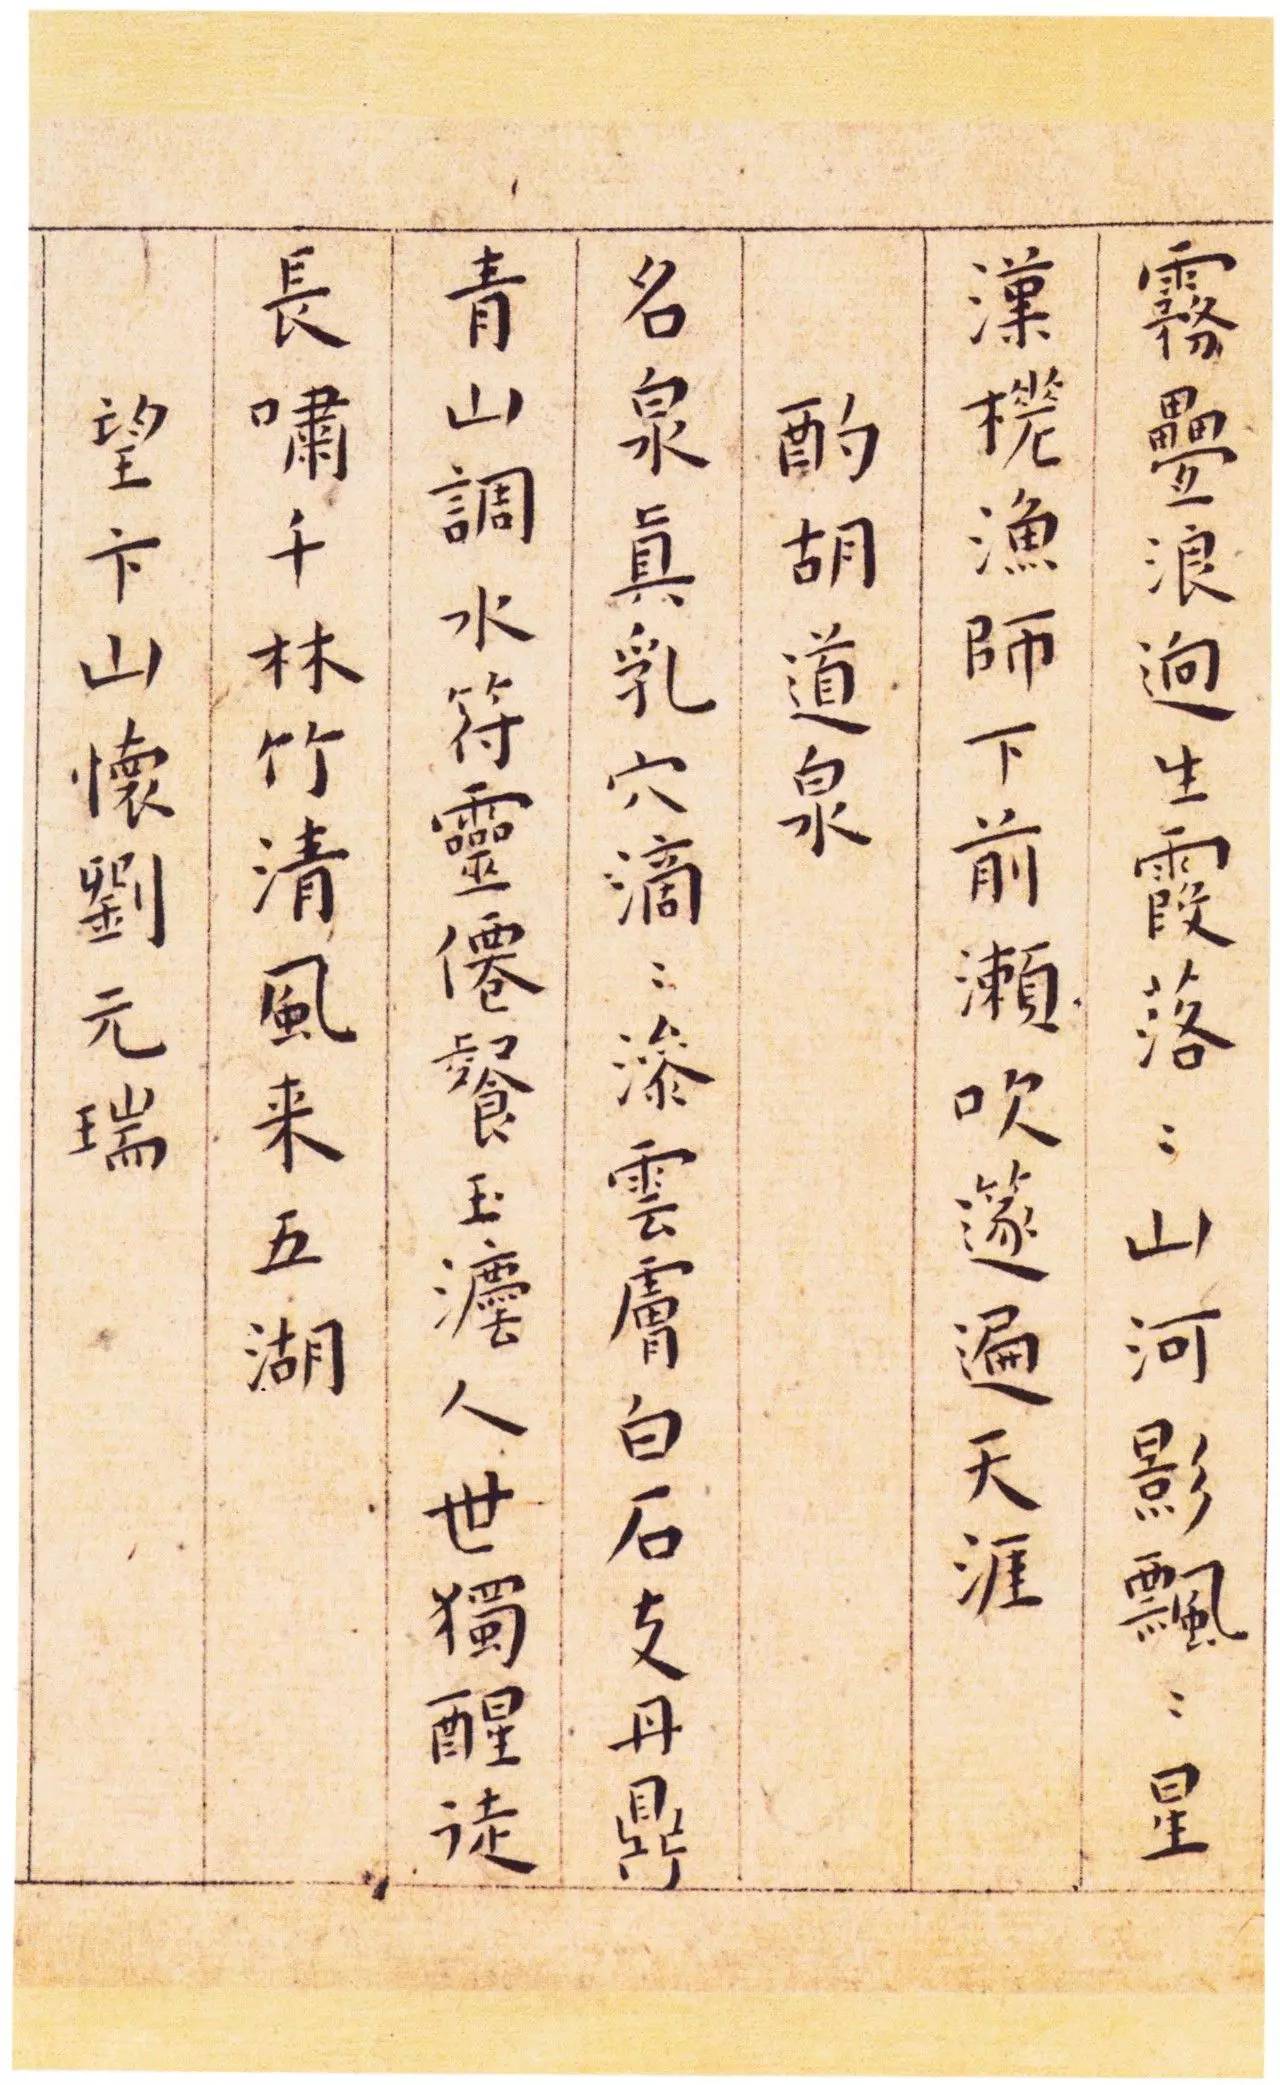 霧疊浪迥生霞落〻山河影飄〻星
漢槎漁師下前瀬吹篴遍天涯
酌胡道泉
名泉眞乳穴滴〻滲雲膚白石支丹鼎
青山調水符靈僊餐玉灋人世獨醒徒
長嘯千林竹清風来五湖
望卞山懷劉元瑞